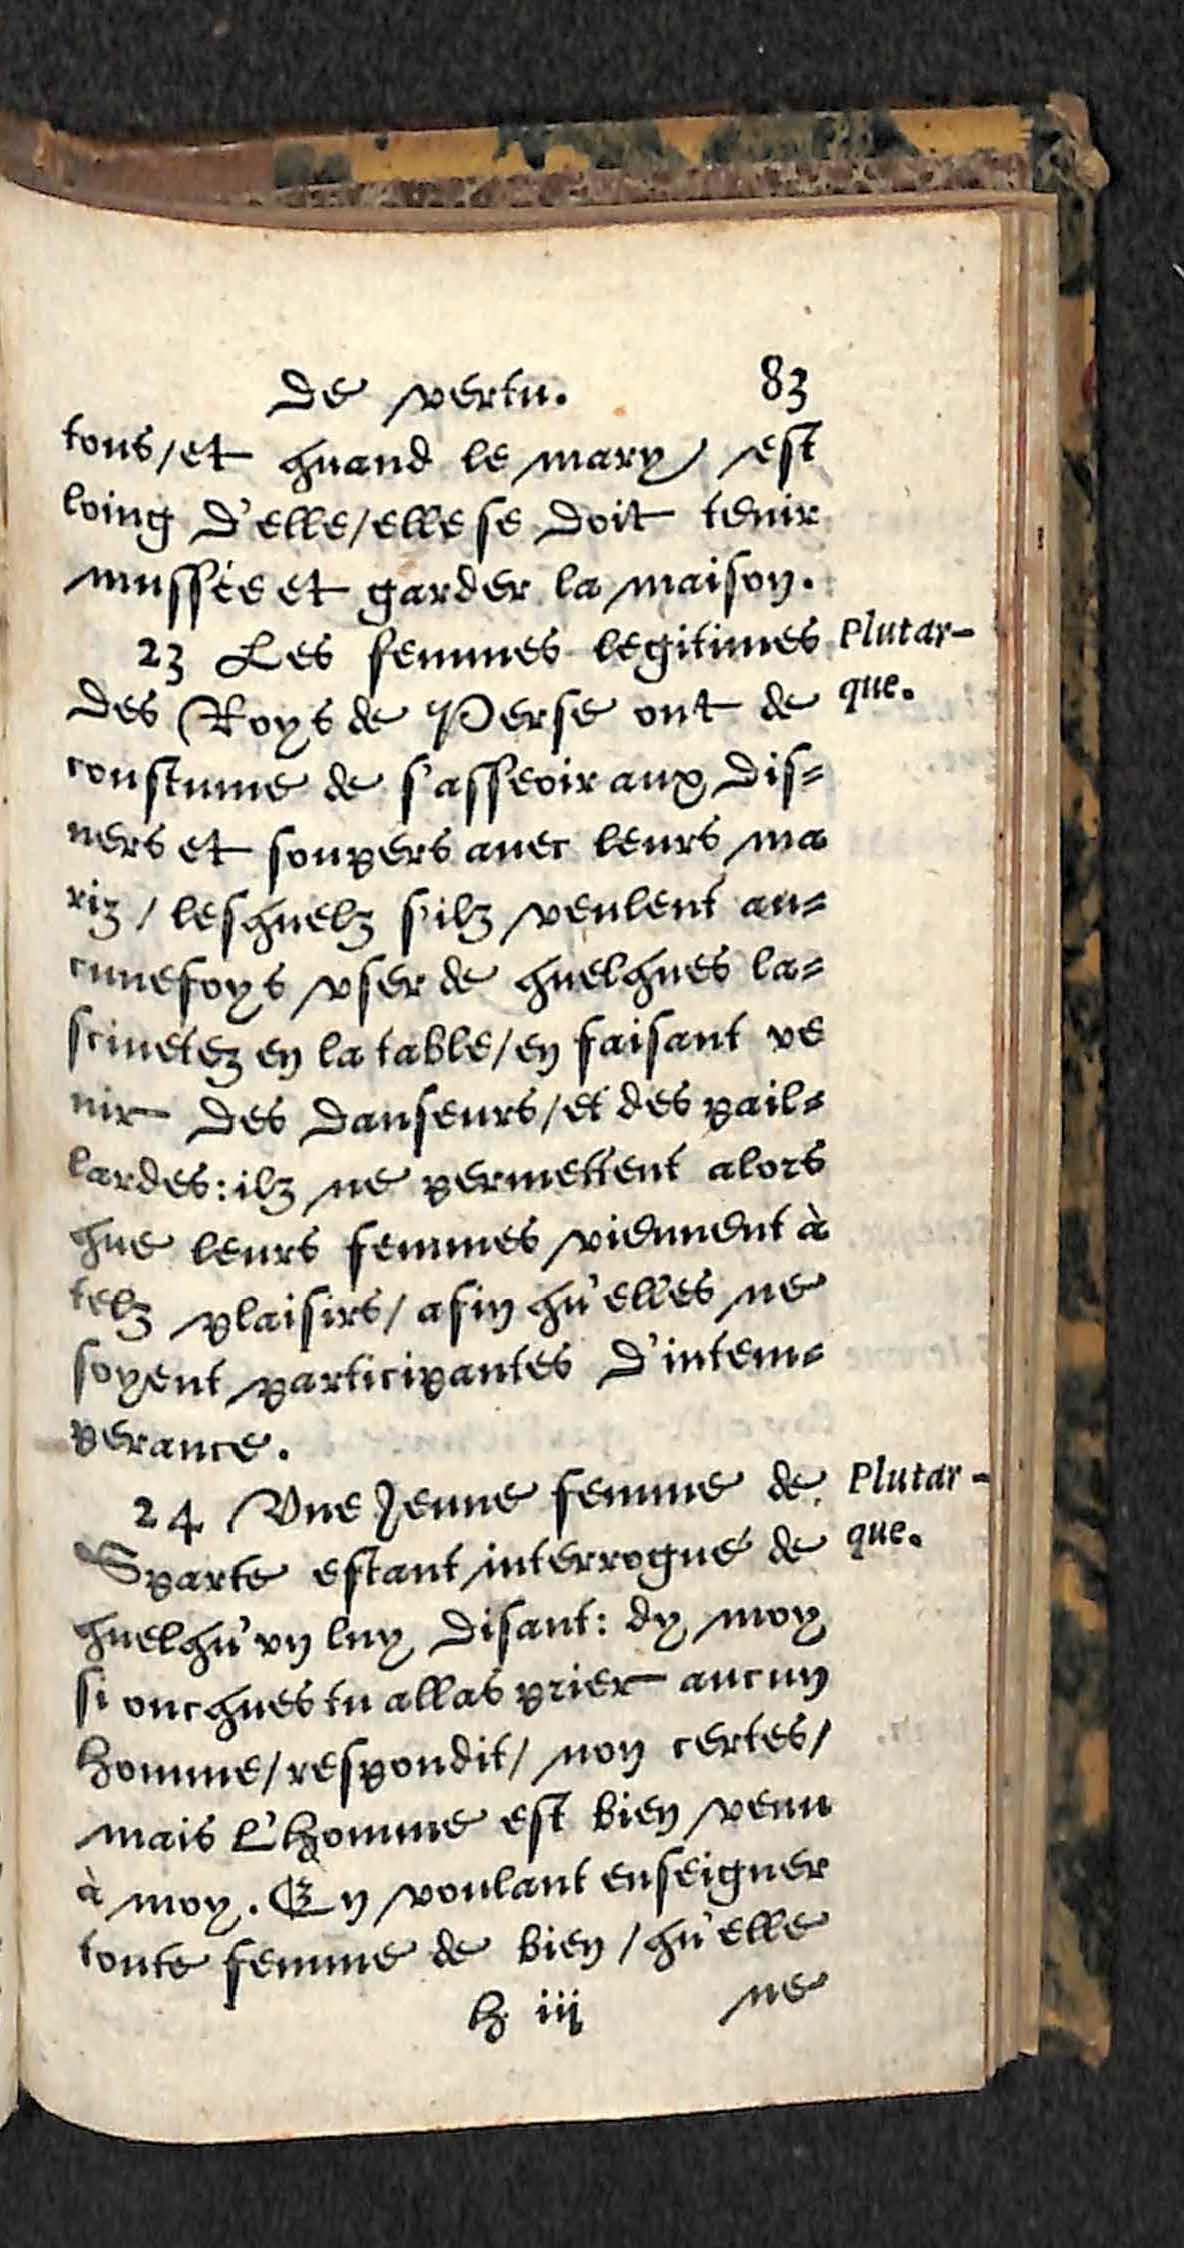 de vertu. 83
tous/et quand le mary est
loing d'elle/elle se doit tenir
mussée et garder la maison.
23 Les femmes legitimes
Plutar-
des Roys de Perse ont de
que.
coustume de s'asseoir aux dis=
ners et soupers auec leurs ma
riz/lesquelz s'ilz veulent au=
cunefoys vser de quelques la=
sciuetez en la table/en faisant ve
nir des danseurs/et des pail=
lardes: ilz ne permettent alors
que leurs femmes viennent à
telz plaisirs/afin qu'elles ne
soyent participantes d'intem=
perance.
24 Vne Jeune femme de
Plutar-
Sparte estant interrogué de
que.
quelqu'vn luy disant: dy moy
si oncques tu allas prier aucun
homme/respondit/non certes/
mais l'homme est bien venu
à moy. En voulant enseigner
toute femme de bien/qu'elle
h iij ne